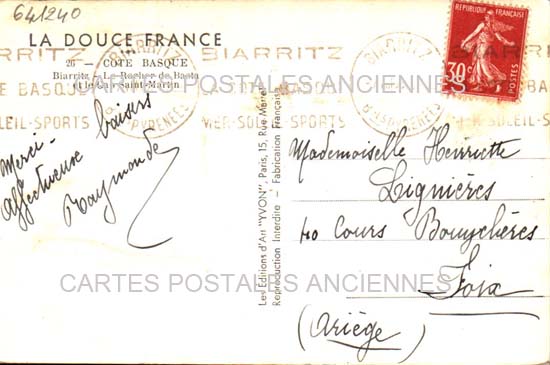 641240
LA DOUCE FRANCE
26 - CÔTE BASQUE
Biarritz - Le Rocher de Basta
et le Cap Saint-Martin
BIARRITZ
CÔTE BASQUE
MER-SOLEIL-SPORTS
BIARRITZ
Bses PYRENEES
RÉPUBLIQUE FRANÇAISE
30c
POSTES
Merci -
Affectueux baisers
Raymonde
Les Editions d'Art "YVON", Paris, 15, Rue Martel
Reproduction Interdite - Fabrication Française
Mademoiselle Henriette
Lignières
40 Cours Bouychères
Foix
(Ariège)
CARTES POSTALES ANCIENNES
CARTES POSTALES ANCIENNES